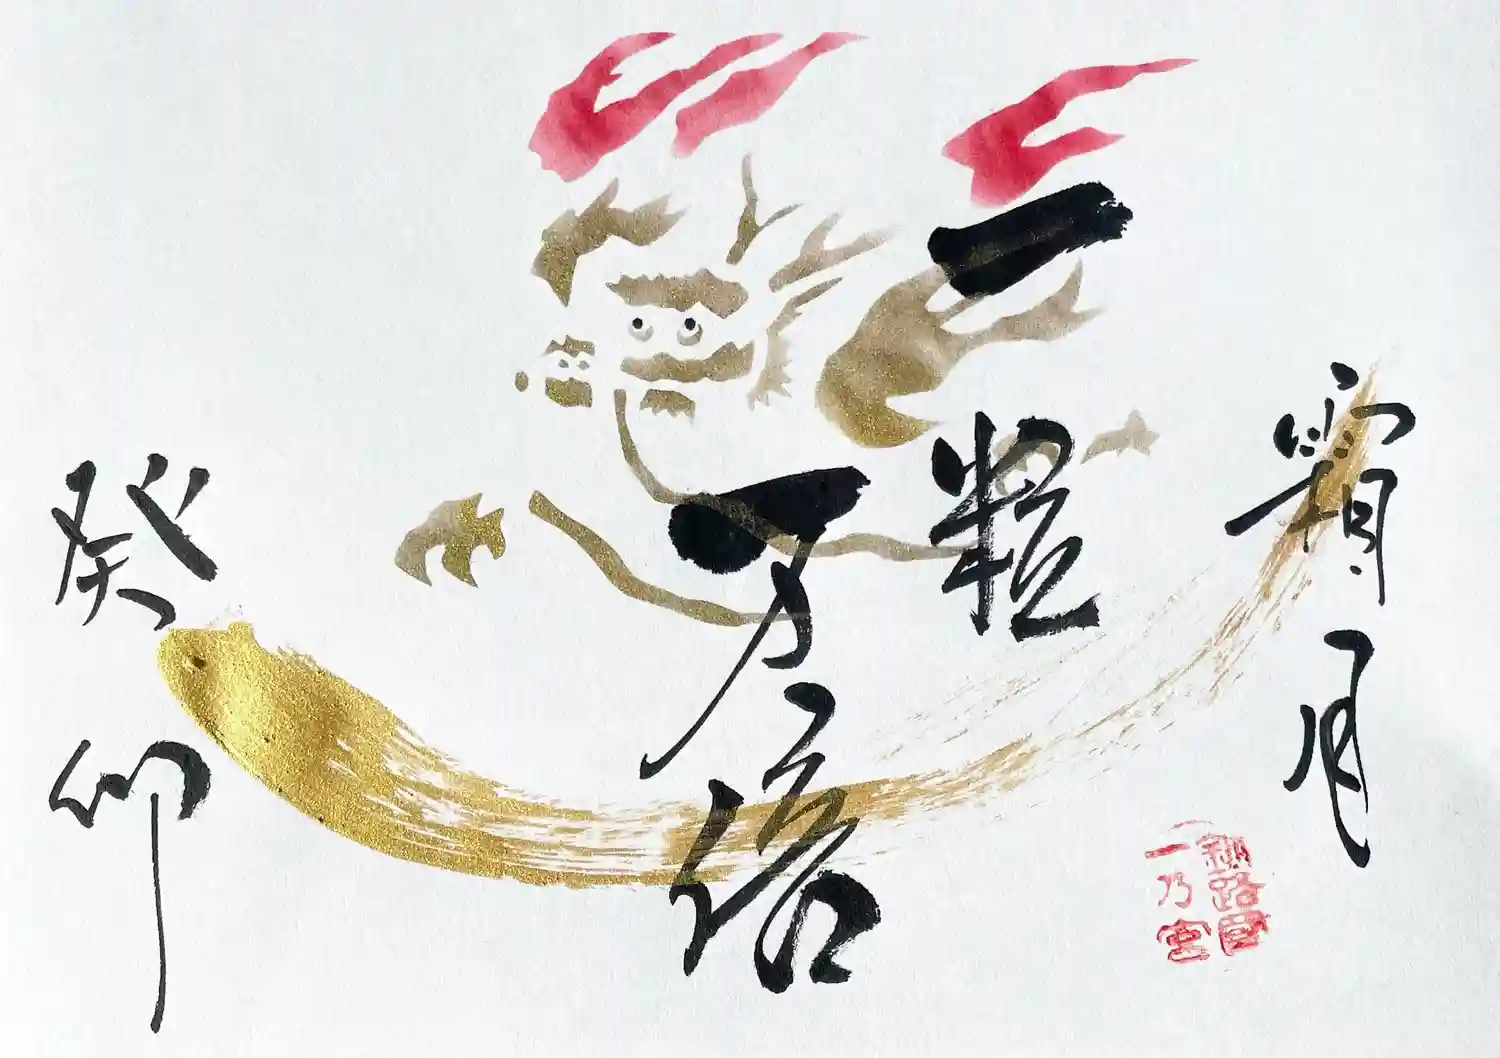 霜月
一粒
万倍
癸卯
釧路国
一乃宮